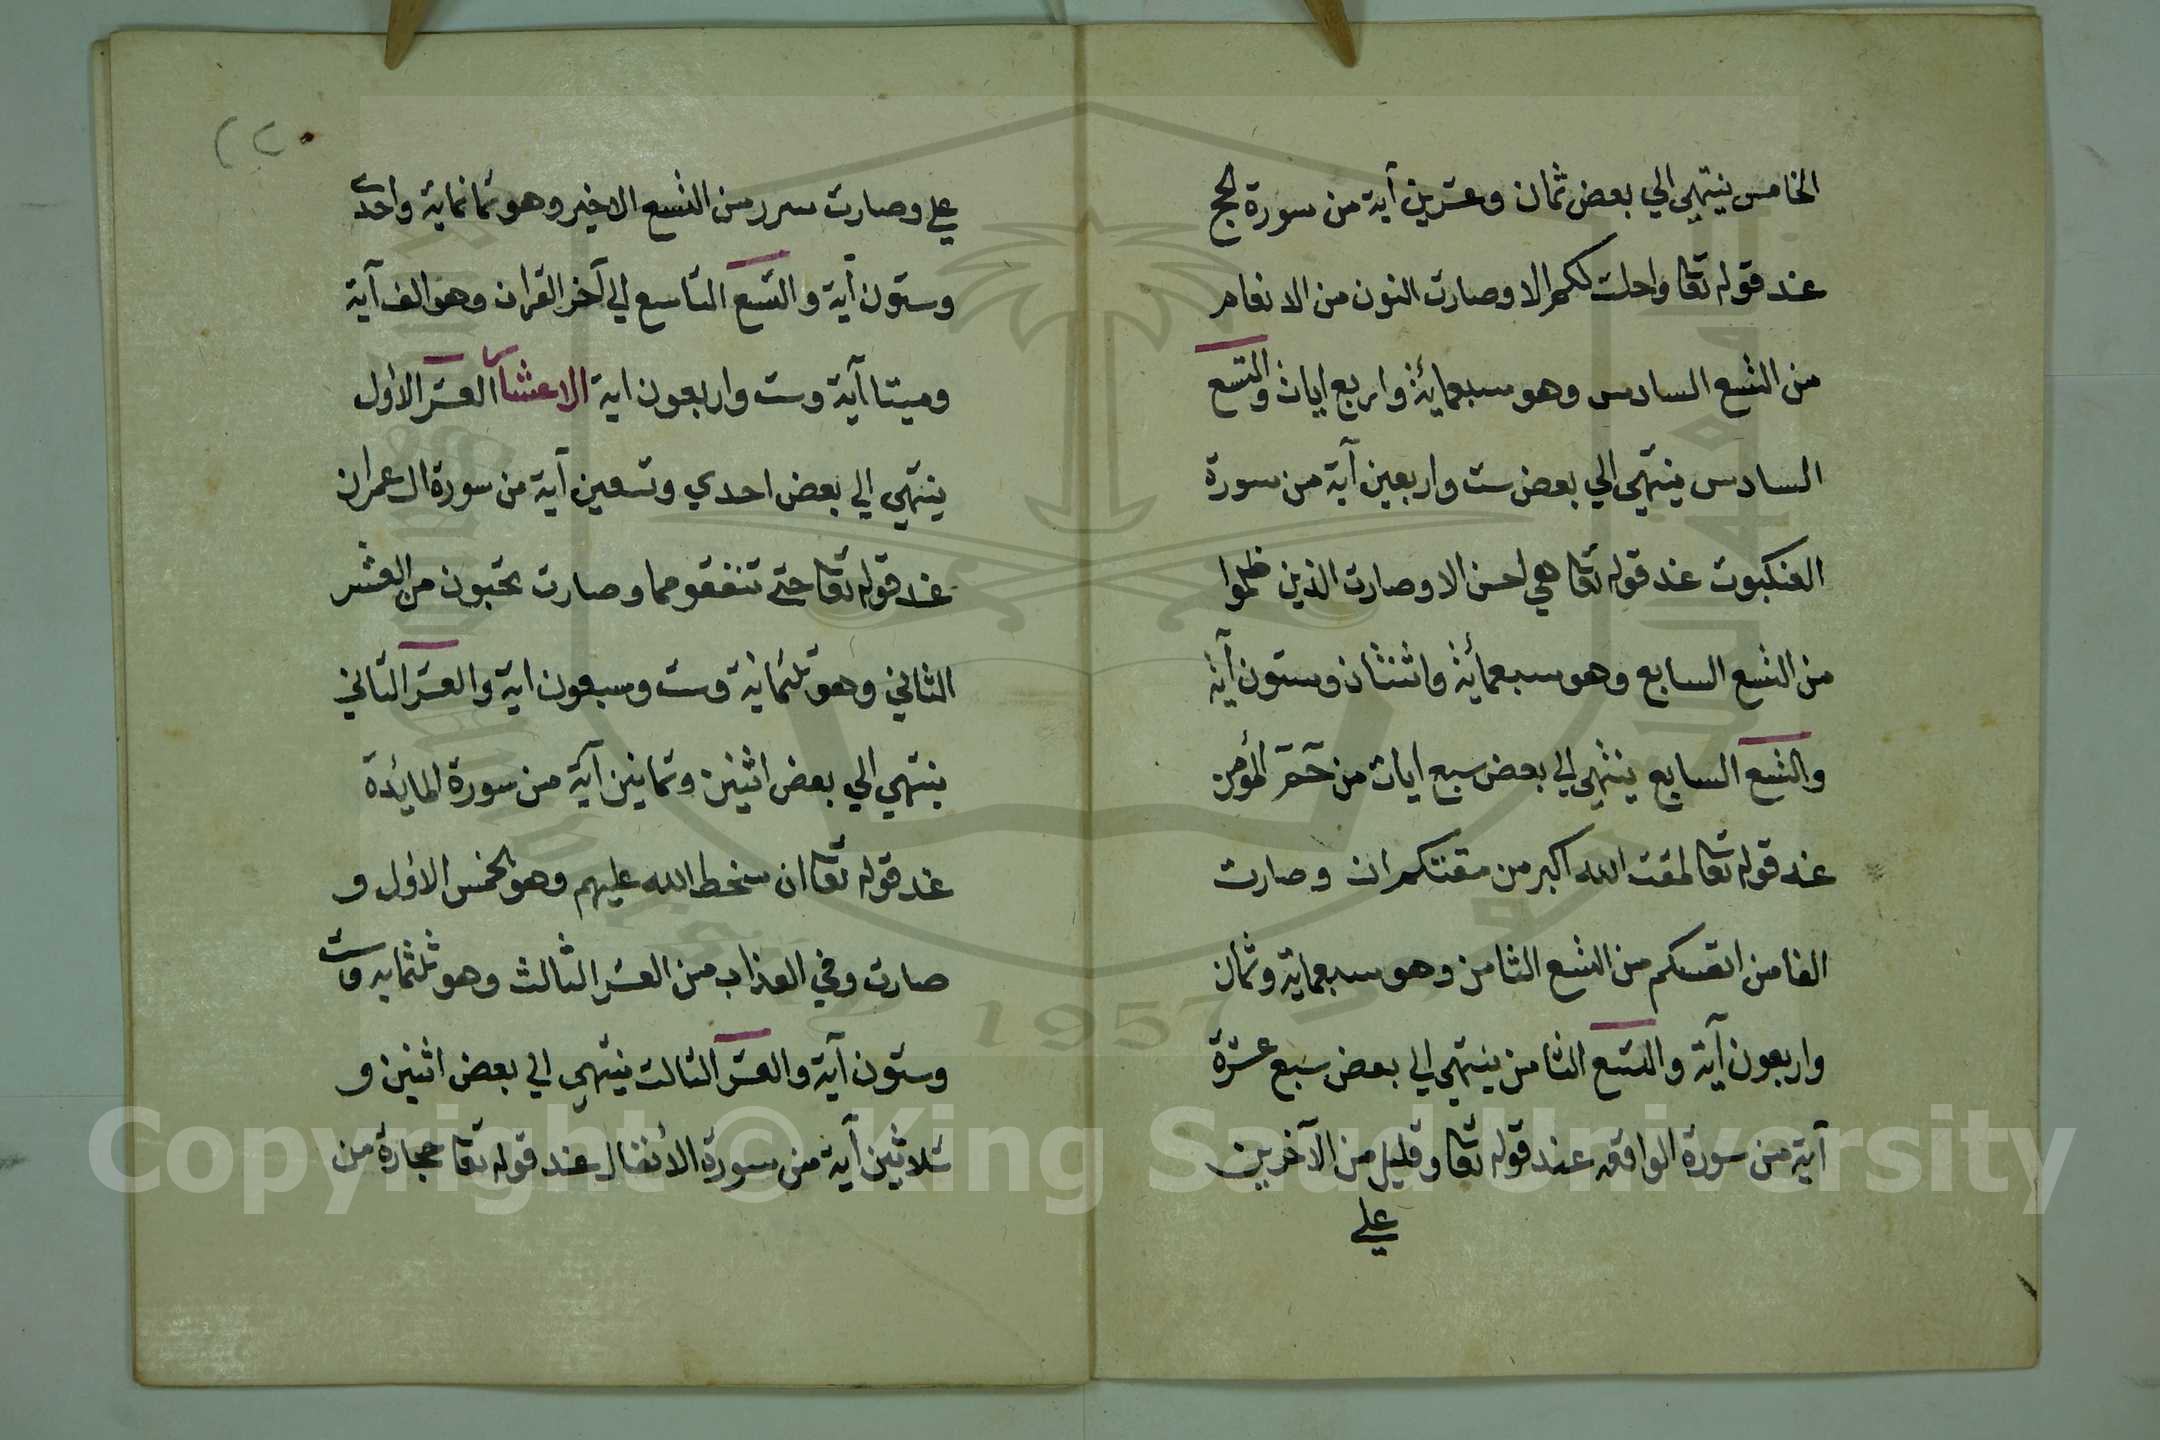 الخامس ينتهي الي بعض ثمان وعشرين آية من سورة الحج
عند قوله تعا واحلت لكم الا وصارت النون من الانعام
من التسع السادس وهو سبعمائة واربع ايات والتسع
السادس ينتهي الي بعض ست واربعين آية من سورة
العنكبوت عند قوله تعا هي احسن الا وصارت الذين ظلموا
من التسع السابع وهو سبعمائة واثنتان وستون آية
والتسع السابع ينتهي الي بعض سبع ايات من حم المؤمن
عند قوله تعا لمقت الله اكبر من مقتكم ان وصارت
الفا من انفسكم من التسع الثامن وهو سبعماية وثمان
واربعون آية والتسع الثامن ينتهي الي بعض سبع عشرة
آية من سورة الواقعه عند قوله تعا وقليل من الآخرين
علي
٢٢
علي وصارت سرر من التسع الاخير وهو ثمانماية واحدي
وستون آية والتسع التاسع الي آخر القران وهو الف آية
وميتا آية وست واربعون اية الاعشار العشر الاول
ينتهي الي بعض احدي وتسعين آية من سورة ال عمران
عند قوله تعا حتي تنفقو مما وصارت تحبون من العشر
الثاني وهو ثلثماية وست وسبعون اية والعشر الثاني
ينتهي الي بعض اثنين وثمانين آية من سورة المايدة
عند قوله تعا ان سخط الله عليهم وهو الخمس الاول و
صارت وفي العذاب من العشر الثالث وهو ثلثمايه وست
وستون آية والعشر الثالث ينتهي الي بعض اثنين و
ثلاثين آية من سورة الأنفال عند قوله تعا حجارة من
1957
Copyright © King Saud University